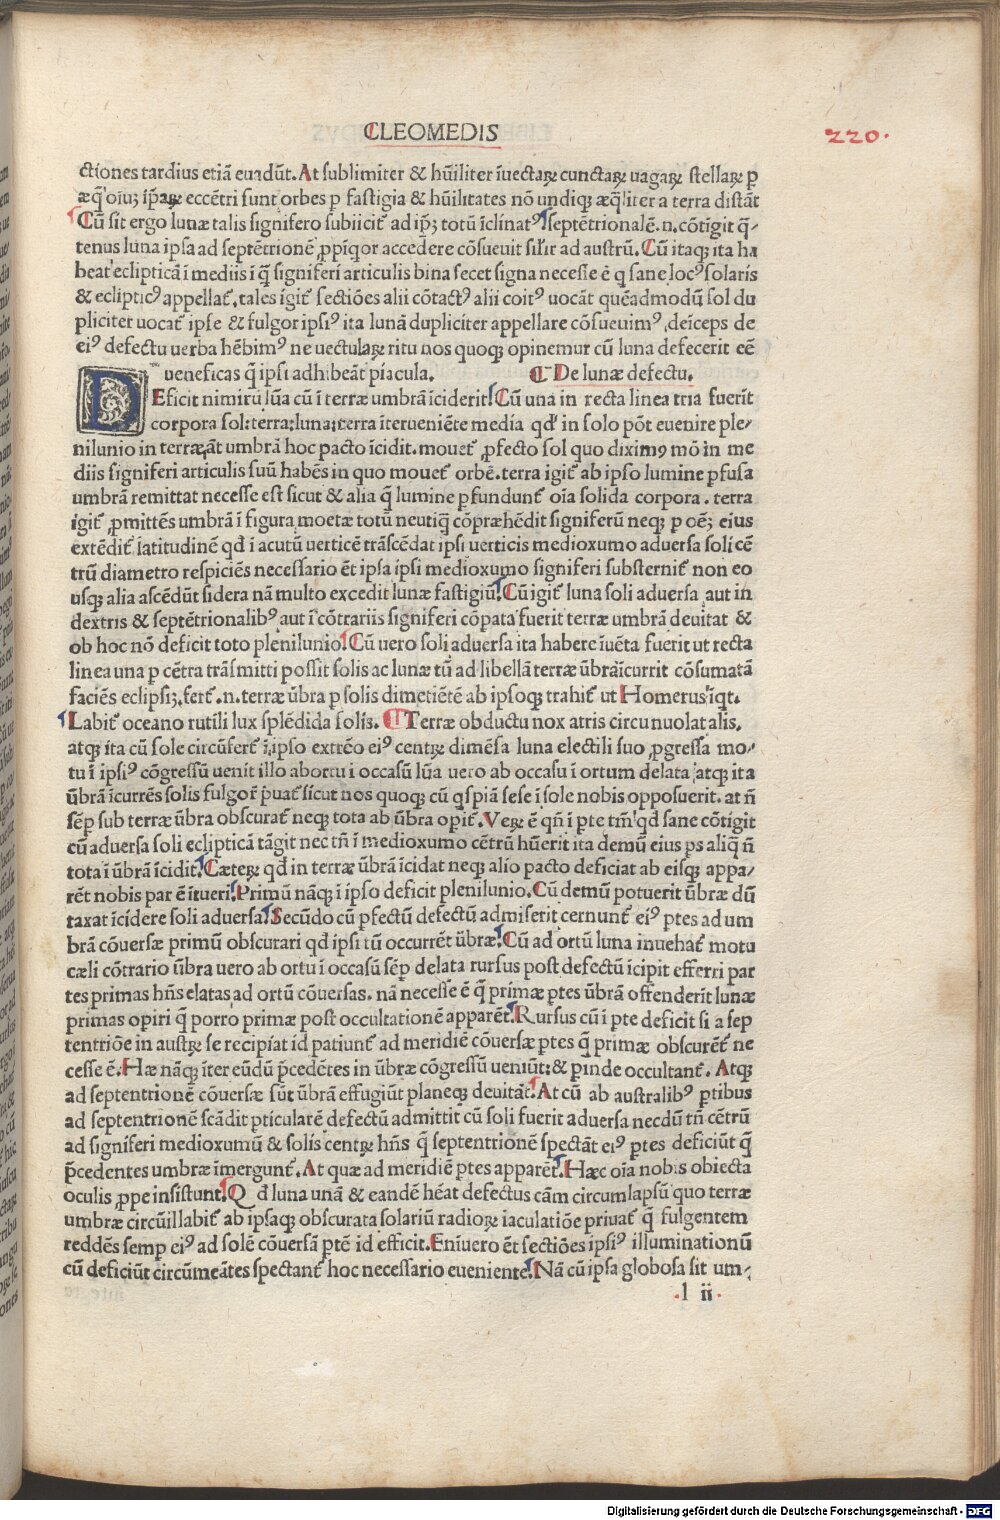 CLEOMEDIS
220.
ctiones tardius etiã euadũt. At sublimiter & hũiliter ĩuectaꝝ cunctaꝝ uagaꝝ stellaꝝ ꝑ
æq̃ oĩuꝫ ip̃aꝝ eccẽtri sunt orbes ꝑ fastigia & hũilitates nõ undiqꝫ æq̃liter a terra distãt
Cũ sit ergo lunæ talis signifero subiicit̃ ad ip̃ꝫ totũ ĩclinatꝰ septẽtrionalẽ.n.cõtigit q̃-
tenus luna ipsa ad septẽtrionẽ ꝓpiq̃or accedere cõsueuit sil̃ir ad austrũ. Cũ itaqꝫ ita ha
beat eclipticã ĩ mediis ĩ q̃ signiferi articulis bina secet signa necesse ẽ q sane locꝰ solaris
& eclipticꝰ appellat̃. tales igit̃ sectiões alii cõtactꝰ alii coitꝰ uocãt quẽadmodũ sol du
pliciter uocat̃ ipse & fulgor ipsiꝰ ita lunã dupliciter appellare cõsueuimꝰ, deĩceps de
eiꝰ defectu uerba hẽbimꝰ ne uectulaꝝ ritu nos quoqꝫ opinemur cũ luna defecerit eẽ
ueneficas q̃ ipsi adhibeãt piacula. De lunæ defectu.
DEficit nimirũ lũa cũ ĩ terræ umbrã ĩciderit Cũ una in recta linea tria fuerĩt
corpora sol: terra: luna: terra ĩterueniẽte media qđ in solo põt euenire ple-
nilunio in terræ ãt umbrã hoc pacto ĩcidit. mouet̃ ꝓfecto sol quo diximꝰ mõ in me
diis signiferi articulis suũ habẽs in quo mouet̃ orbẽ. terra igit̃ ab ipso lumine ꝑfusa
umbrã remittat necesse est sicut & alia q̃ lumine ꝑfundunt̃ oĩa solida corpora. terra
igit̃ ꝓmittẽs umbrã ĩ figura moetæ totũ neutiq̃ cõpræhẽdit signiferũ neqꝫ ꝑ oẽꝫ eius
extẽdit̃ latitudinẽ qđ ĩ acutũ uerticẽ trãscẽdat ipsi uerticis medioxumo aduersa soli cẽ
trũ diametro respiciẽs necessario ẽt ipsa ipsi medioxumo signiferi substernit̃ non eo
usqꝫ alia ascẽdũt sidera nã multo excedit lunæ fastigiũ Cũ igit̃ luna soli aduersa aut in
dextris & septẽtrionalibꝰ aut ĩ cõtrariis signiferi cõpata fuerit terræ umbrã deuitat &
ob hoc nõ deficit toto plenilunio Cũ uero soli aduersa ita habere ĩuẽta fuerit ut recta
linea una ꝑ cẽtra trãsmitti possit solis ac lunæ tũ ad libellã terræ ũbrã ĩcurrit cõsumatã
faciẽs eclipsiꝫ. fert̃.n. terræ ũbra ꝑ solis dimetiẽtẽ ab ipsoqꝫ trahit̃ ut Homerus ĩqt.
Labit̃ oceano rutili lux splẽdida solis. Terræ obductu nox atris circũuolat alis.
atqꝫ ita cũ sole circũfert̃ ĩ ipso extrẽo eiꝰ centꝝ dimẽsa luna electili suo ꝓgressa mo-
tu ĩ ipsiꝰ cõgressũ uenit illo abortu ĩ occasũ lũa uero ab occasu ĩ ortum delata atqꝫ ita
ũbrã ĩcurrẽs solis fulgor̃ p̃uat̃ sicut nos quoqꝫ cũ qspiã sese ĩ sole nobis opposuerit. at ñ
sẽp sub terræ ũbra obscurat̃ neqꝫ tota ab ũbra opit̃. Veꝝ ẽ qñ ĩ ꝑte tm̃ qđ sane cõtigit
cũ aduersa soli eclipticã tãgit nec tñ ĩ medioxumo cẽtrũ hũerit ita demũ eius ꝑs aliq̃ ñ
tota ĩ ũbrã ĩcidit. Cæteꝝ qđ in terræ ũbrã ĩcidat neqꝫ alio pacto deficiat ab eisqꝫ appa-
rẽt nobis par ẽ ĩtueri. Primũ nãqꝫ ĩ ipso deficit plenilunio. Cũ demũ potuerit ũbræ dũ
taxat ĩcidere soli aduersa Secũdo cũ ꝑfectũ defectũ admiserit cernunt̃ eiꝰ ꝑtes ad um
brã cõuersæ primũ obscurari qđ ipsi tũ occurrẽt ũbræ Cũ ad ortũ luna inuehat̃ motu
cæli cõtrario ũbra uero ab ortu ĩ occasũ sẽp delata rursus post defectũ ĩcipit efferri par
tes primas hñs elatas ad ortũ cõuersas. nã necesse ẽ q̃ primæ ꝑtes ũbrã offenderĩt lunæ
primas opiri q̃ porro primæ post occultationẽ apparẽt Rursus cũ ĩ ꝑte deficit si a sep
tentriõe in austꝝ se recipiat id patiunt̃ ad meridiẽ cõuersæ ꝑtes q̃ primæ obscurẽt̃ ne
cesse ẽ. Hæ nãqꝫ ĩter eũdũ p̃cedẽtes in ũbræ cõgressũ ueniũt: & ꝑinde occultant̃. Atqꝫ
ad septentrionẽ cõuersæ sũt ũbrã effugiũt planeqꝫ deuitãt. At cũ ab australibꝰ ꝑtibus
ad septentrionẽ scãdit ꝑticularẽ defectũ admittit cũ soli fuerit aduersa necdũ tñ cẽtrũ
ad signiferi medioxumũ & solis centꝝ hñs q̃ septentrionẽ spectãt eiꝰ ꝑtes deficiũt q̃
p̃cedentes umbræ ĩmergunt̃. At quæ ad meridiẽ ꝑtes apparẽt. Hæc oĩa nobis obiecta
oculis ꝓpe insistunt Qđ luna unã & eandẽ hẽat defectus cãm circumlapsũ quo terræ
umbræ circũillabit̃ ab ipsaqꝫ obscurata solariũ radioꝝ iaculatiõe priuat̃ q̃ fulgentem
reddẽs semp eiꝰ ad solẽ cõuersã ꝑtẽ id efficit. Enĩuero ẽt sectiões ipsiꝰ illuminationũ
cũ deficiũt circũmeãtes spectant̃ hoc necessario eueniente. Nã cũ ipsa globosa sit um-
.l ii.
Digitalisierung gefördert durch die Deutsche Forschungsgemeinschaft - DFG